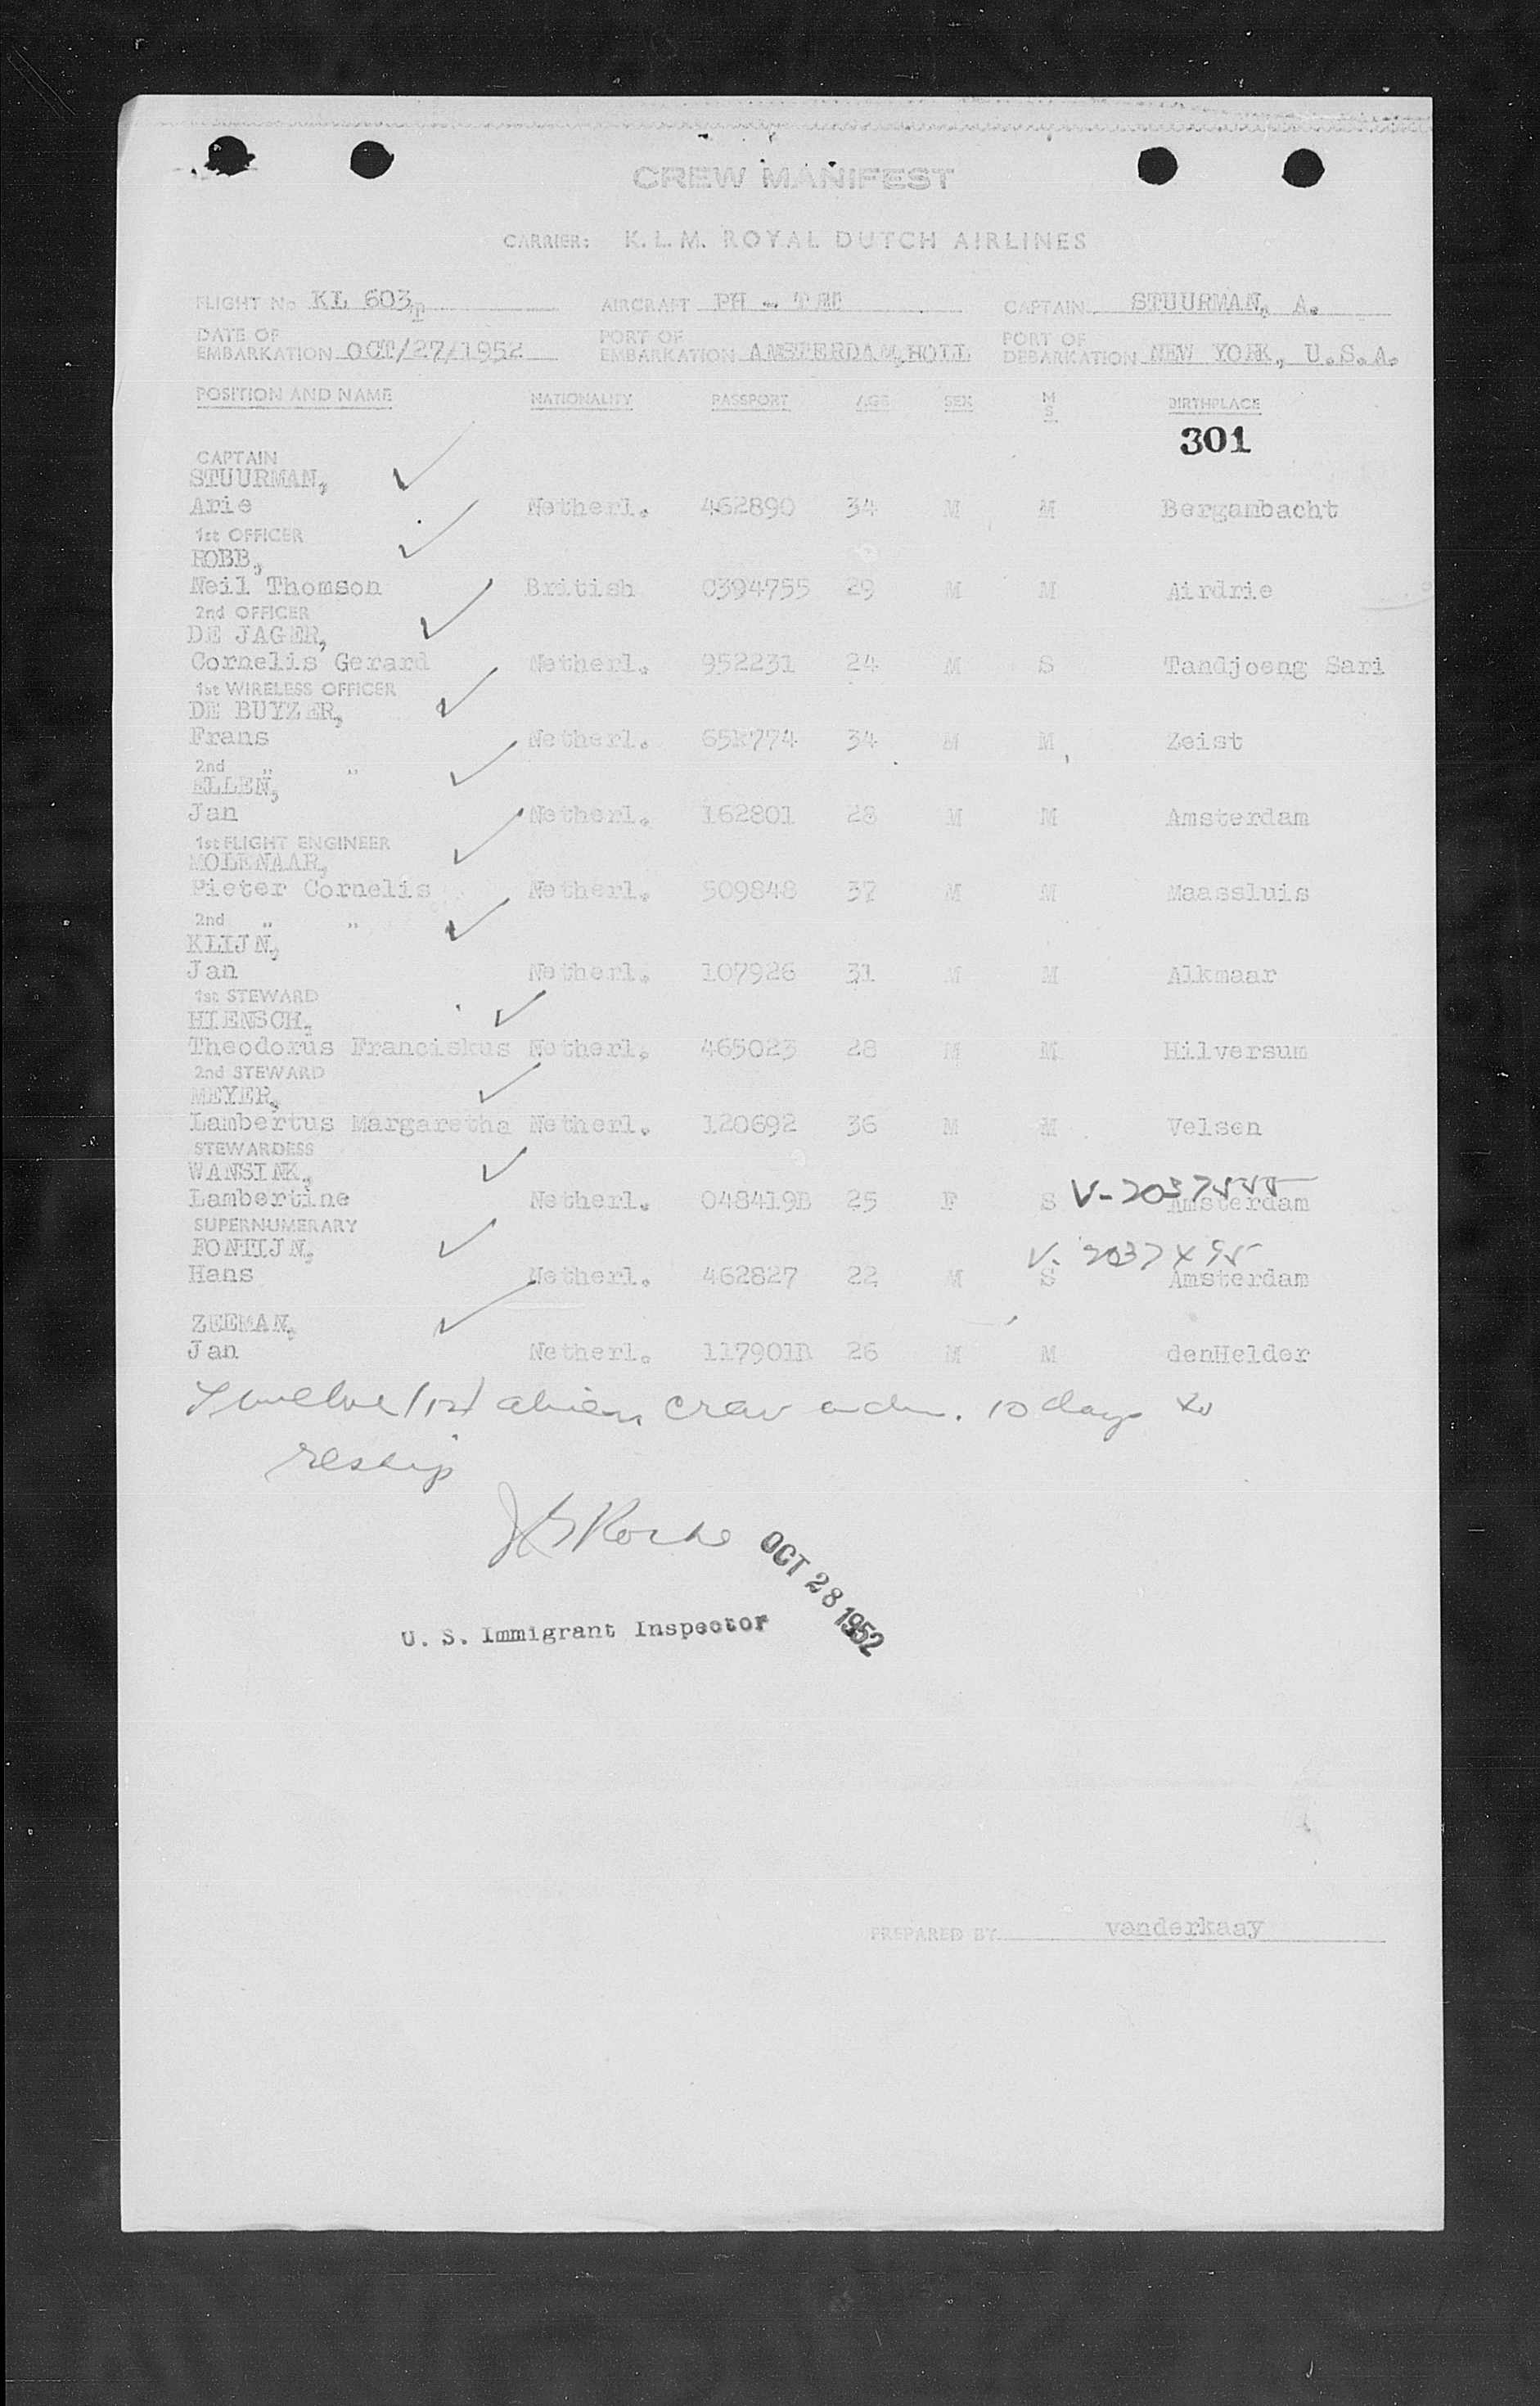 CREW MANIFEST
CARRIER: K. L. M. ROYAL DUTCH AIRLINES
FLIGHT No KL 603T AIRCRAFT PH - CAPTAIN STUURMAN, A.
DATE OF EMBARKATION OCT/27/1952 PORT OF EMBARKATION AMSTERDAM,HOLL PORT OF DEBARKATION NEW YORK, U.S.A.
POSITION AND NAME NATIONALITY PASSPORT AGE SEX M S BIRTHPLACE
301
CAPTAIN
STUURMAN,
Arie Netherl. 462890 34 M M Bergambacht
1st OFFICER
ROBB,
Neil Thomson British 0394755 29 M M Airdrie
2nd OFFICER
DE JAGER,
Cornelis Gerard Netherl. 952231 24 M S Tandjoeng Sari
1st WIRELESS OFFICER
DE BUYZER,
Frans Netherl. 34 M M Zeist
2nd " "
ELLEN,
Jan Netherl. 162801 28 M M Amsterdam
1st FLIGHT ENGINEER
MOLENAAR,
Pieter Cornelis Netherl. 509848 37 M M Maassluis
2nd " "
KLIJN,
Jan Netherl. 107926 31 M M Alkmaar
1st STEWARD
HIENSCH,
Theodorus Franciskus Netherl. 465023 28 M M Hilversum
2nd STEWARD
MEYER,
Lambertus Margaretha Netherl. 120692 36 M M Velsen
STEWARDESS
WANSINK,
Lambertine Netherl. 048419B 25 F S Amsterdam
SUPERNUMERARY
FONTIJN,
Hans Netherl. 462827 22 M S Amsterdam
ZEEMAN,
Jan Netherl. 117901B 26 M M denHelder
Twelve (12) alien crew adm. 10 days to
reship
OCT 28 1952
U. S. Immigrant Inspector
PREPARED BY vanderkaay